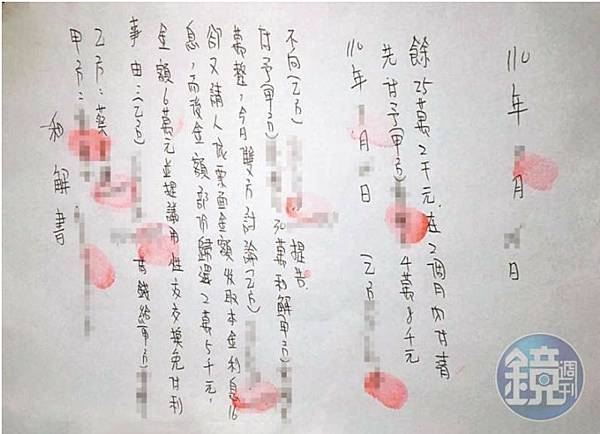 和解書
甲方:
乙方:蔡
事由:(乙方) 錢給(甲方)
金額6萬元並提議用性交交換免付利
息,而後金額部份歸還2萬5千元,
卻又請人依票面金額收取本金利息16
萬整,今日雙方討論(乙方)
付予(甲方) 30萬和解(甲方)
不向(乙方) 提告.
110年 月 日 乙方
先付予(甲方) 4萬8千元
餘25萬2千元.在2個月內付清
110年 月 日
鏡週刊